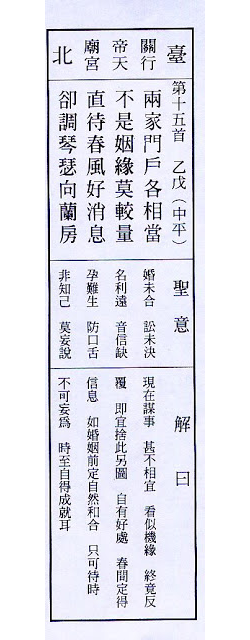 臺
關行
帝天
廟宮
北
第十五首 乙戊（中平）
兩家門戶各相當
不是姻緣莫較量
直待春風好消息
卻調琴瑟向蘭房
聖意
婚未合 訟未決
名利遠 音信缺
孕難生 防口舌
非知己 莫妄說
解曰
現在謀事 甚不相宜 看似機緣 終竟反
覆 即宜捨此另圖 自有好處 春間定得
信息 如婚姻前定自然和合 只可待時
不可妄為 時至自得成就耳